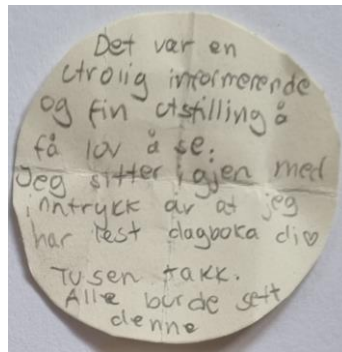 Det var en
utrolig informerende
og fin utstilling å
få lov å se.
Jeg sitter igjen med
inntrykk av at jeg
har lest dagboka di♡
Tusen takk.
Alle burde sett
denne